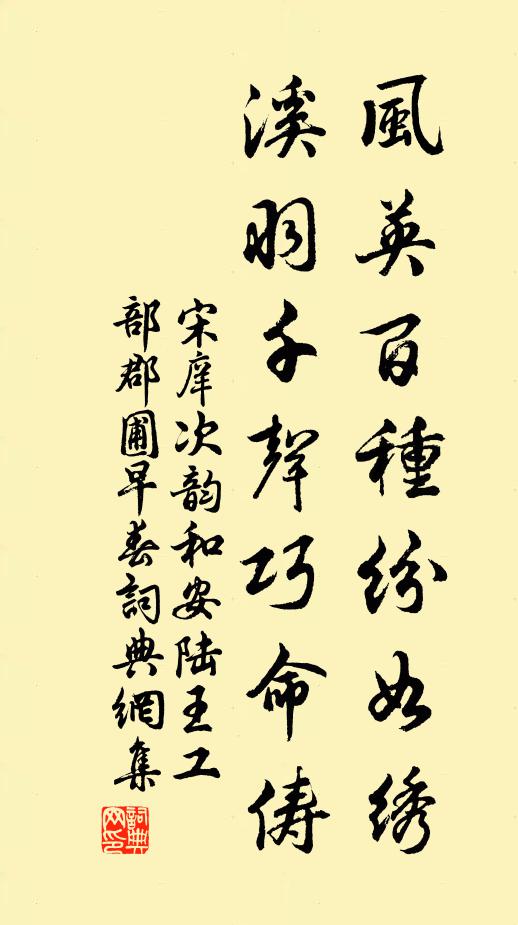 風英百種紛如绣
溪羽千聲巧命儔
宋庠次韵和安陆王工
部郡圃早春詞典網集
詞典
网印